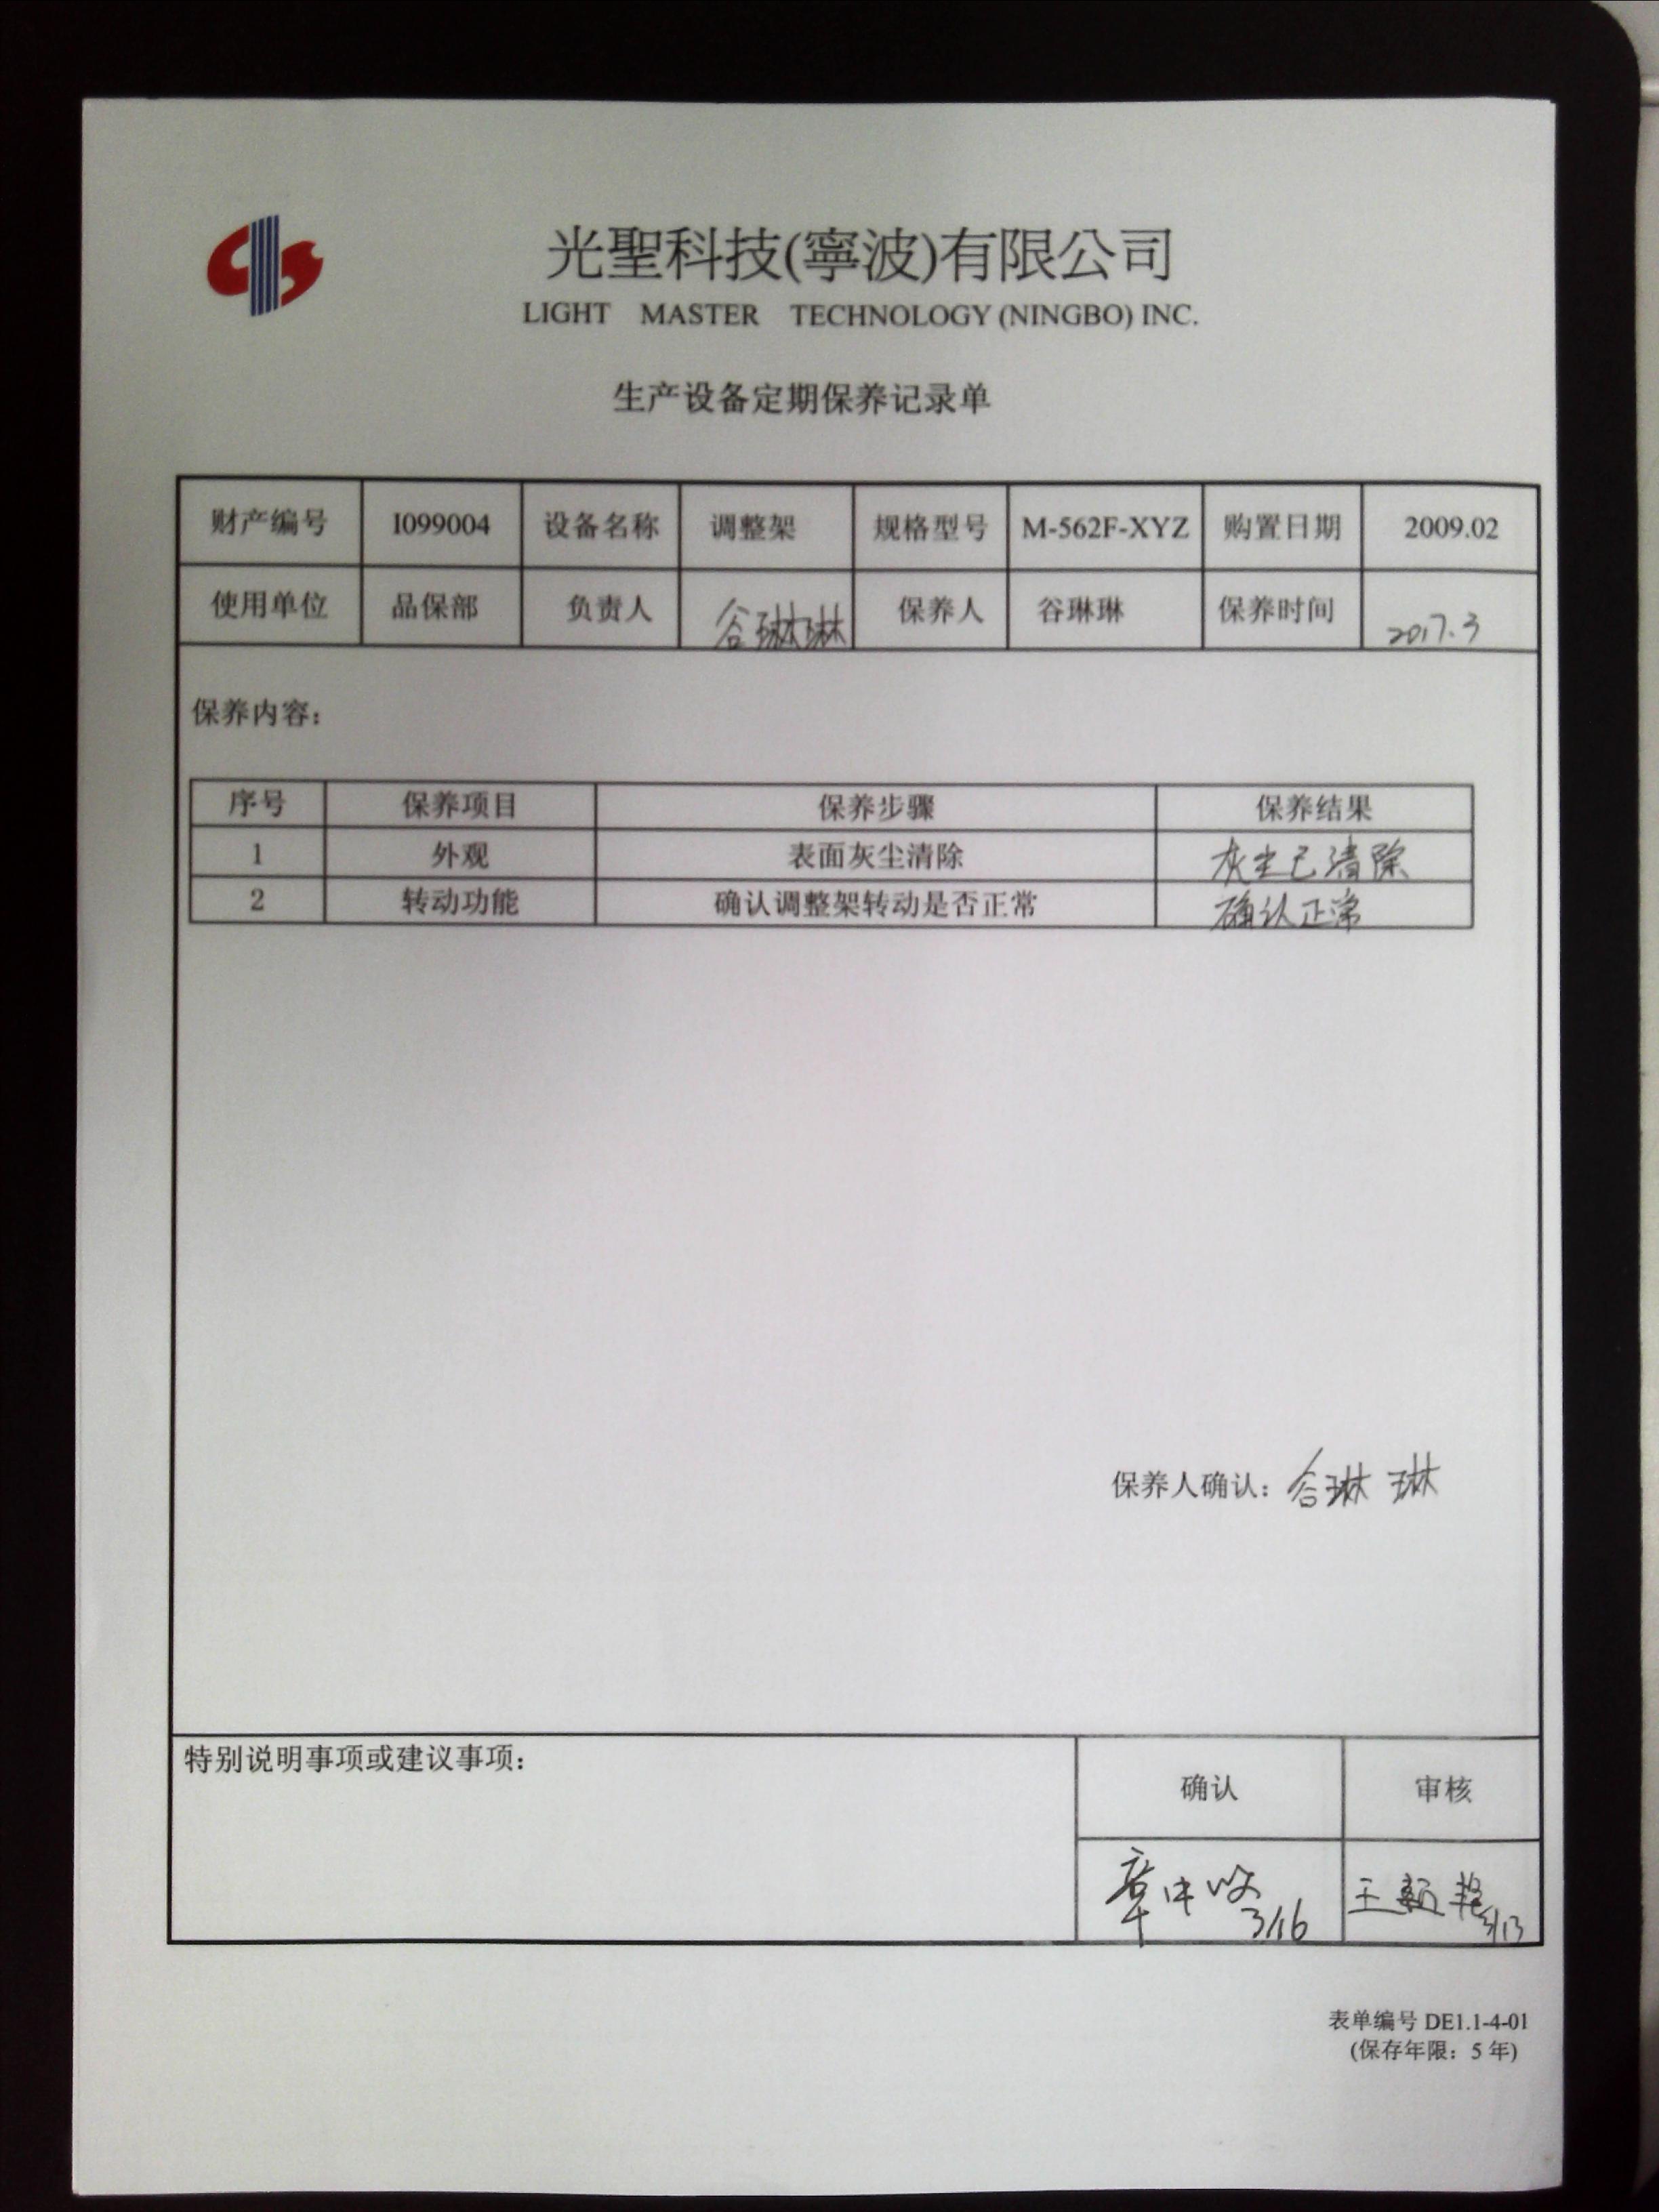 光聖科技(寧波)有限公司
LIGHT MASTER TECHNOLOGY (NINGBO) INC.
生产设备定期保养记录单
财产编号 I099004 设备名称 调整架 规格型号 M-562F-XYZ 购置日期 2009.02
使用单位 品保部 负责人 谷琳琳 保养人 谷琳琳 保养时间 2017.3
保养内容：
序号 保养项目 保养步骤 保养结果
1 外观 表面灰尘清除 灰尘已清除
2 转动功能 确认调整架转动是否正常 确认正常
保养人确认：谷琳琳
特别说明事项或建议事项：
确认 审核
3/16 3/13
表单编号 DE1.1-4-01
(保存年限：5 年)